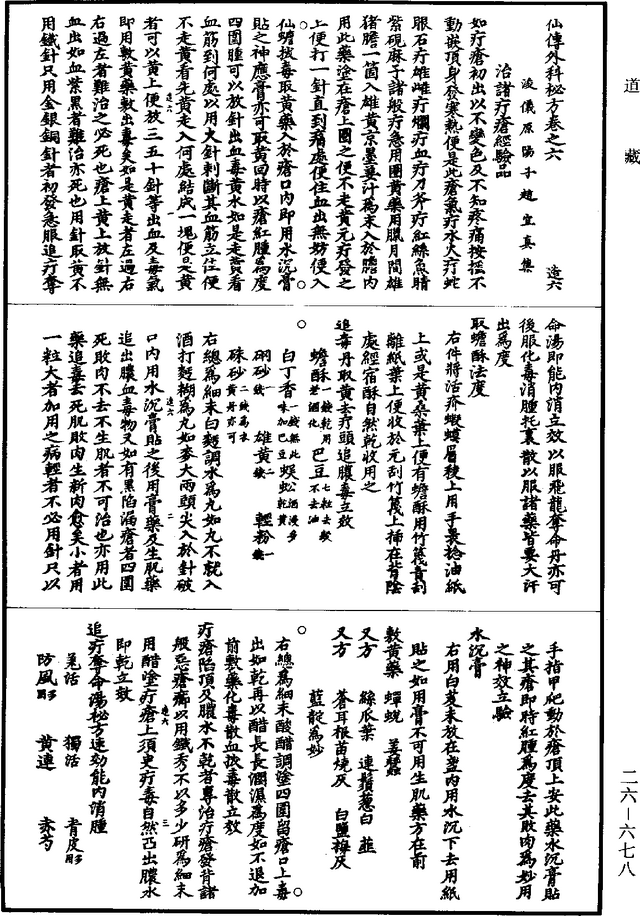 道藏
仙傳外科秘方卷之六 造六
浚儀原陽子趙宜真集
治諸疔瘡經驗品
如疔瘡初出以不變色及不知疼痛按搖不
動嵌頂身發寒熱便是此瘡氣疔水火疔蛇
眼石疔雄雌疔爛疔血疔刀斧疔紅絲魚睛
紫硯麻子諸般疔急用圈黃藥用臘月間雄
猪膽一箇入雄黃京墨蟇汁爲末入於膽內
用此藥塗在瘡上圈之便不走黃元疔發之
上便打一針直到痛處便住血出無妨便入
仙蟾拔毒取黃藥入於瘡口內即用水沉膏
貼之神應膏亦可取黃回時以瘡紅腫爲度
四圍腫可以放針出血毒黃水如是走黃看
血筋到何處以用火針刺斷其血筋立住便
不走黃看先黃走入何處結成一塊便是黃
者可以黃上便放三五十針等出血及毒氣
即用敷黃藥敷出毒矣如是黃走者左過右
右過左者難治之必死也瘡上黃上放針無
血出如血紫黑者難治亦死也用針取黃不
用鐵針只用金銀銅針者初發急服追疔奪
命湯即能內消立效以服飛龍奪命丹亦可
後服化毒消腫托裏散以服諸藥皆要大汗
出爲度
取蟾酥法度
右件將活疥蝦蟆眉稜上用手裹捻油紙
上或是黃桑葉上便有蟾酥用竹篾青刮
離紙葉上便收於元刮竹篾上插在背陰
處經宿酥自然乾收用之
追毒丹取黃去疔頭追膿毒立效
蟾酥一錢乾用老酒化 巴豆七粒去殼不去油
白丁香一錢無此味加巴豆 蜈蚣酒浸
硇砂一錢 雄黃二錢 輕粉一錢
硃砂二錢爲衣黃丹亦可
右總爲細末白麪調水爲丸如丸不就入
酒打麪糊爲丸如麥大兩頭尖入於針破
口內用水沉膏貼之後用膏藥及生肌藥
追出膿血毒物又如有黑陷漏瘡者四圍
死敗肉不去不生肌者不可治也亦用此
藥追毒去死肌敗肉生新肉愈矣小者用
一粒大者加用之病輕者不必用針只以
手指甲爬動於瘡頂上安此藥水沉膏貼
之其瘡即時紅腫爲度去其敗肉爲妙用
之神效立驗
水沉膏
右用白芨末放在盌內用水沉下去用紙
貼之如用膏不可用生肌藥方在前
敷黃藥 蟬蛻 薑蠶
又方 絲瓜葉 連鬚葱白 韭
又方 蒼耳根苗燒灰 白鹽梅灰
藍靛爲妙
右總爲細末醶醋調塗四圍留瘡口上毒
出如乾再以醋長長潤濕爲度如不退加
前敷藥化毒散血拔毒散立效
疔瘡陷頂及膿水不乾者專治疔瘡發背諸
般惡瘡癤以用鐵秀不以多少研爲細末
用醋塗疔瘡上須臾疔毒自然凸出膿水
即乾立效
追疔奪命湯秘方速効能內消腫
羌活 獨活 青皮多用
防風多用 黃連 赤芍
二六—六七八